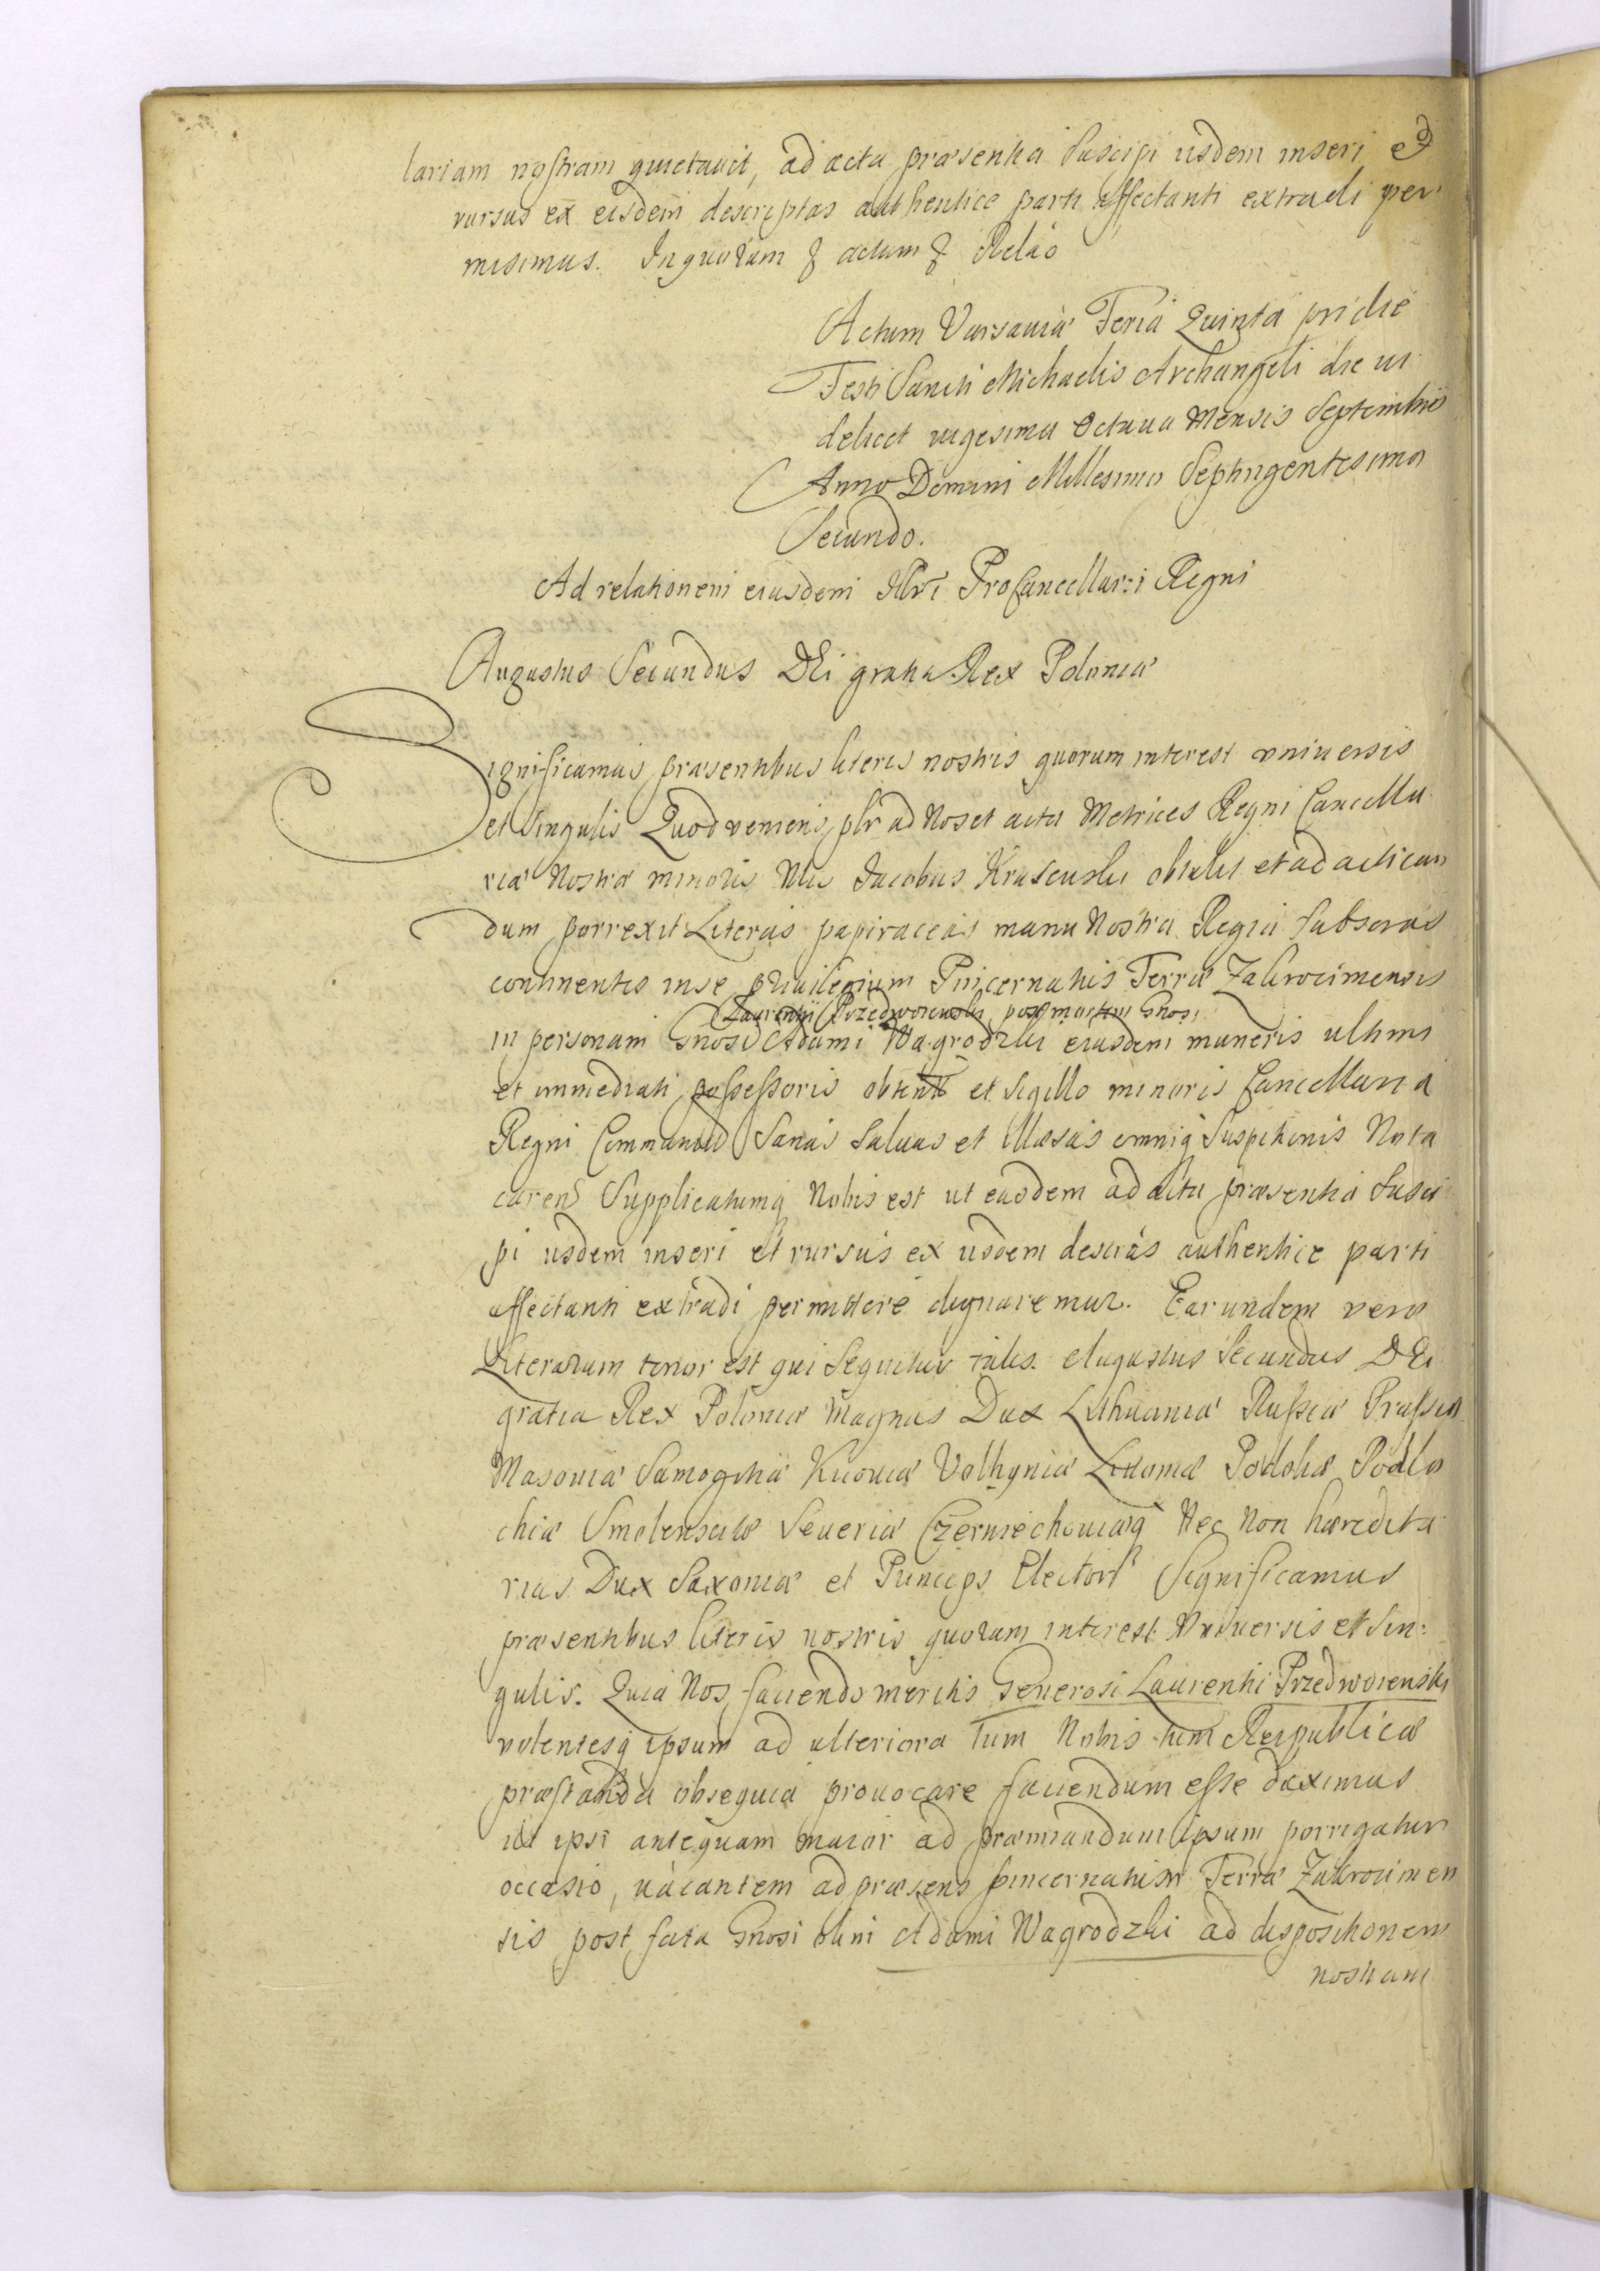 lariam nostram quietavit, ad acta præsentia suscipi iisdem inseri et
rursus ex eisdem descriptas authentice parti affectanti extradi per
misimus. In quorum & actum & Relaõ
Actum Varsaviæ Feria Quinta pridie
Festi Sancti Michaelis Archangeli die vi
delicet vigesima Octava Mensis Septembris
Anno Domini Millesimo Septingentesimo
Secundo.
Ad relationem eiusdem Illri ProCancellarii Regni
Augustus Secundus DEi gratia Rex Poloniæ
Significamus præsentibus literis nostris quorum interest vniuersis
et Singulis Quod veniens plr ad Nos et acta Metrices Regni Cancella
riæ Nostræ minoris Nlis Jacobus Krasuski obtulit et ad actican
dum porrexit Literas papiraceas manu Nostra Regia Subscras
continentes in se privilegium Pincernatus Terræ Zakrocimensis
Laurentij Przedworenski, post mortem Gnosi
in personam Gnosi Adami Wagrodzki eiusdem muneris ultimi
et immediati possessoris obtent et Sigillo minoris Cancellaria
Regni Communit Sanas Saluas et illæsas omniq Suspitionis Nota
caren Supplicatumq Nobis est ut easdem ad acta præsentia susci
pi iisdem inseri et rursus ex iisdem descras authentice parti
affectanti extradi permittere dignaremur. Earundem vero
Literarum tenor est qui Sequitur talis. Augustus Secundus DEi
gratia Rex Poloniæ Magnus Dux Lithuaniæ Russiæ Prussiæ
Masouiæ Samogitiæ Kiouiæ Volhyniæ Liuoniæ Podoliæ Podla
chiæ Smolensciæ Seueriæ Czerniechouiæq Nec Non hæredita
rius Dux Saxoniæ et Princeps Elector Significamus
præsentibus literis nostris quorum interest Vniuersis et Sin:
gulis. Quia Nos fauendo meritis Generosi Laurentii Przedworenski
volentesq ipsum ad ulteriora tum Nobis tum Reipublicæ
præstanda obsequia prouocare faciendum esse duximus
ut ipsi antequam maior ad præmiandum ipsum porrigatur
occasio, uacantem ad præsens pincernatum Terræ Zakrocimen
sis post fata Gnosi olim Adami Wagrodzki ad dispositionem
nostram